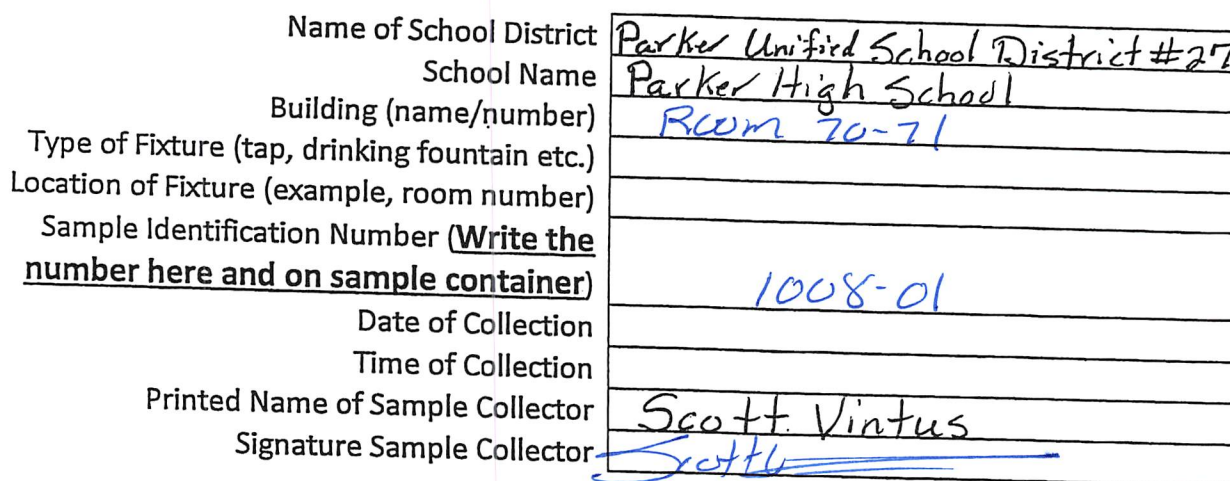 Name of School District Parker Unified School District #27
School Name Parker High School
Building (name/number) Room 70-71
Type of Fixture (tap, drinking fountain etc.)
Location of Fixture (example, room number)
Sample Identification Number (Write the
number here and on sample container) 1008-01
Date of Collection
Time of Collection
Printed Name of Sample Collector Scott Vintus
Signature Sample Collector